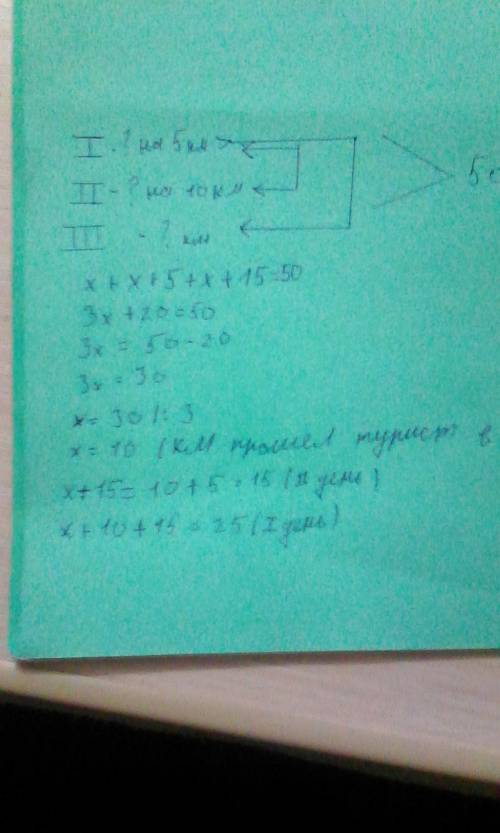 I - ? на 5 км
II - ? на 10 км
III - ? км
x + x + 5 + x + 15 = 50
3x + 20 = 50
3x = 50 - 20
3x = 30
x = 30 : 3
x = 10 (км прошел турист в
x + 15 = 10 + 5 = 15 (II день)
x + 10 + 15 = 25 (I день)